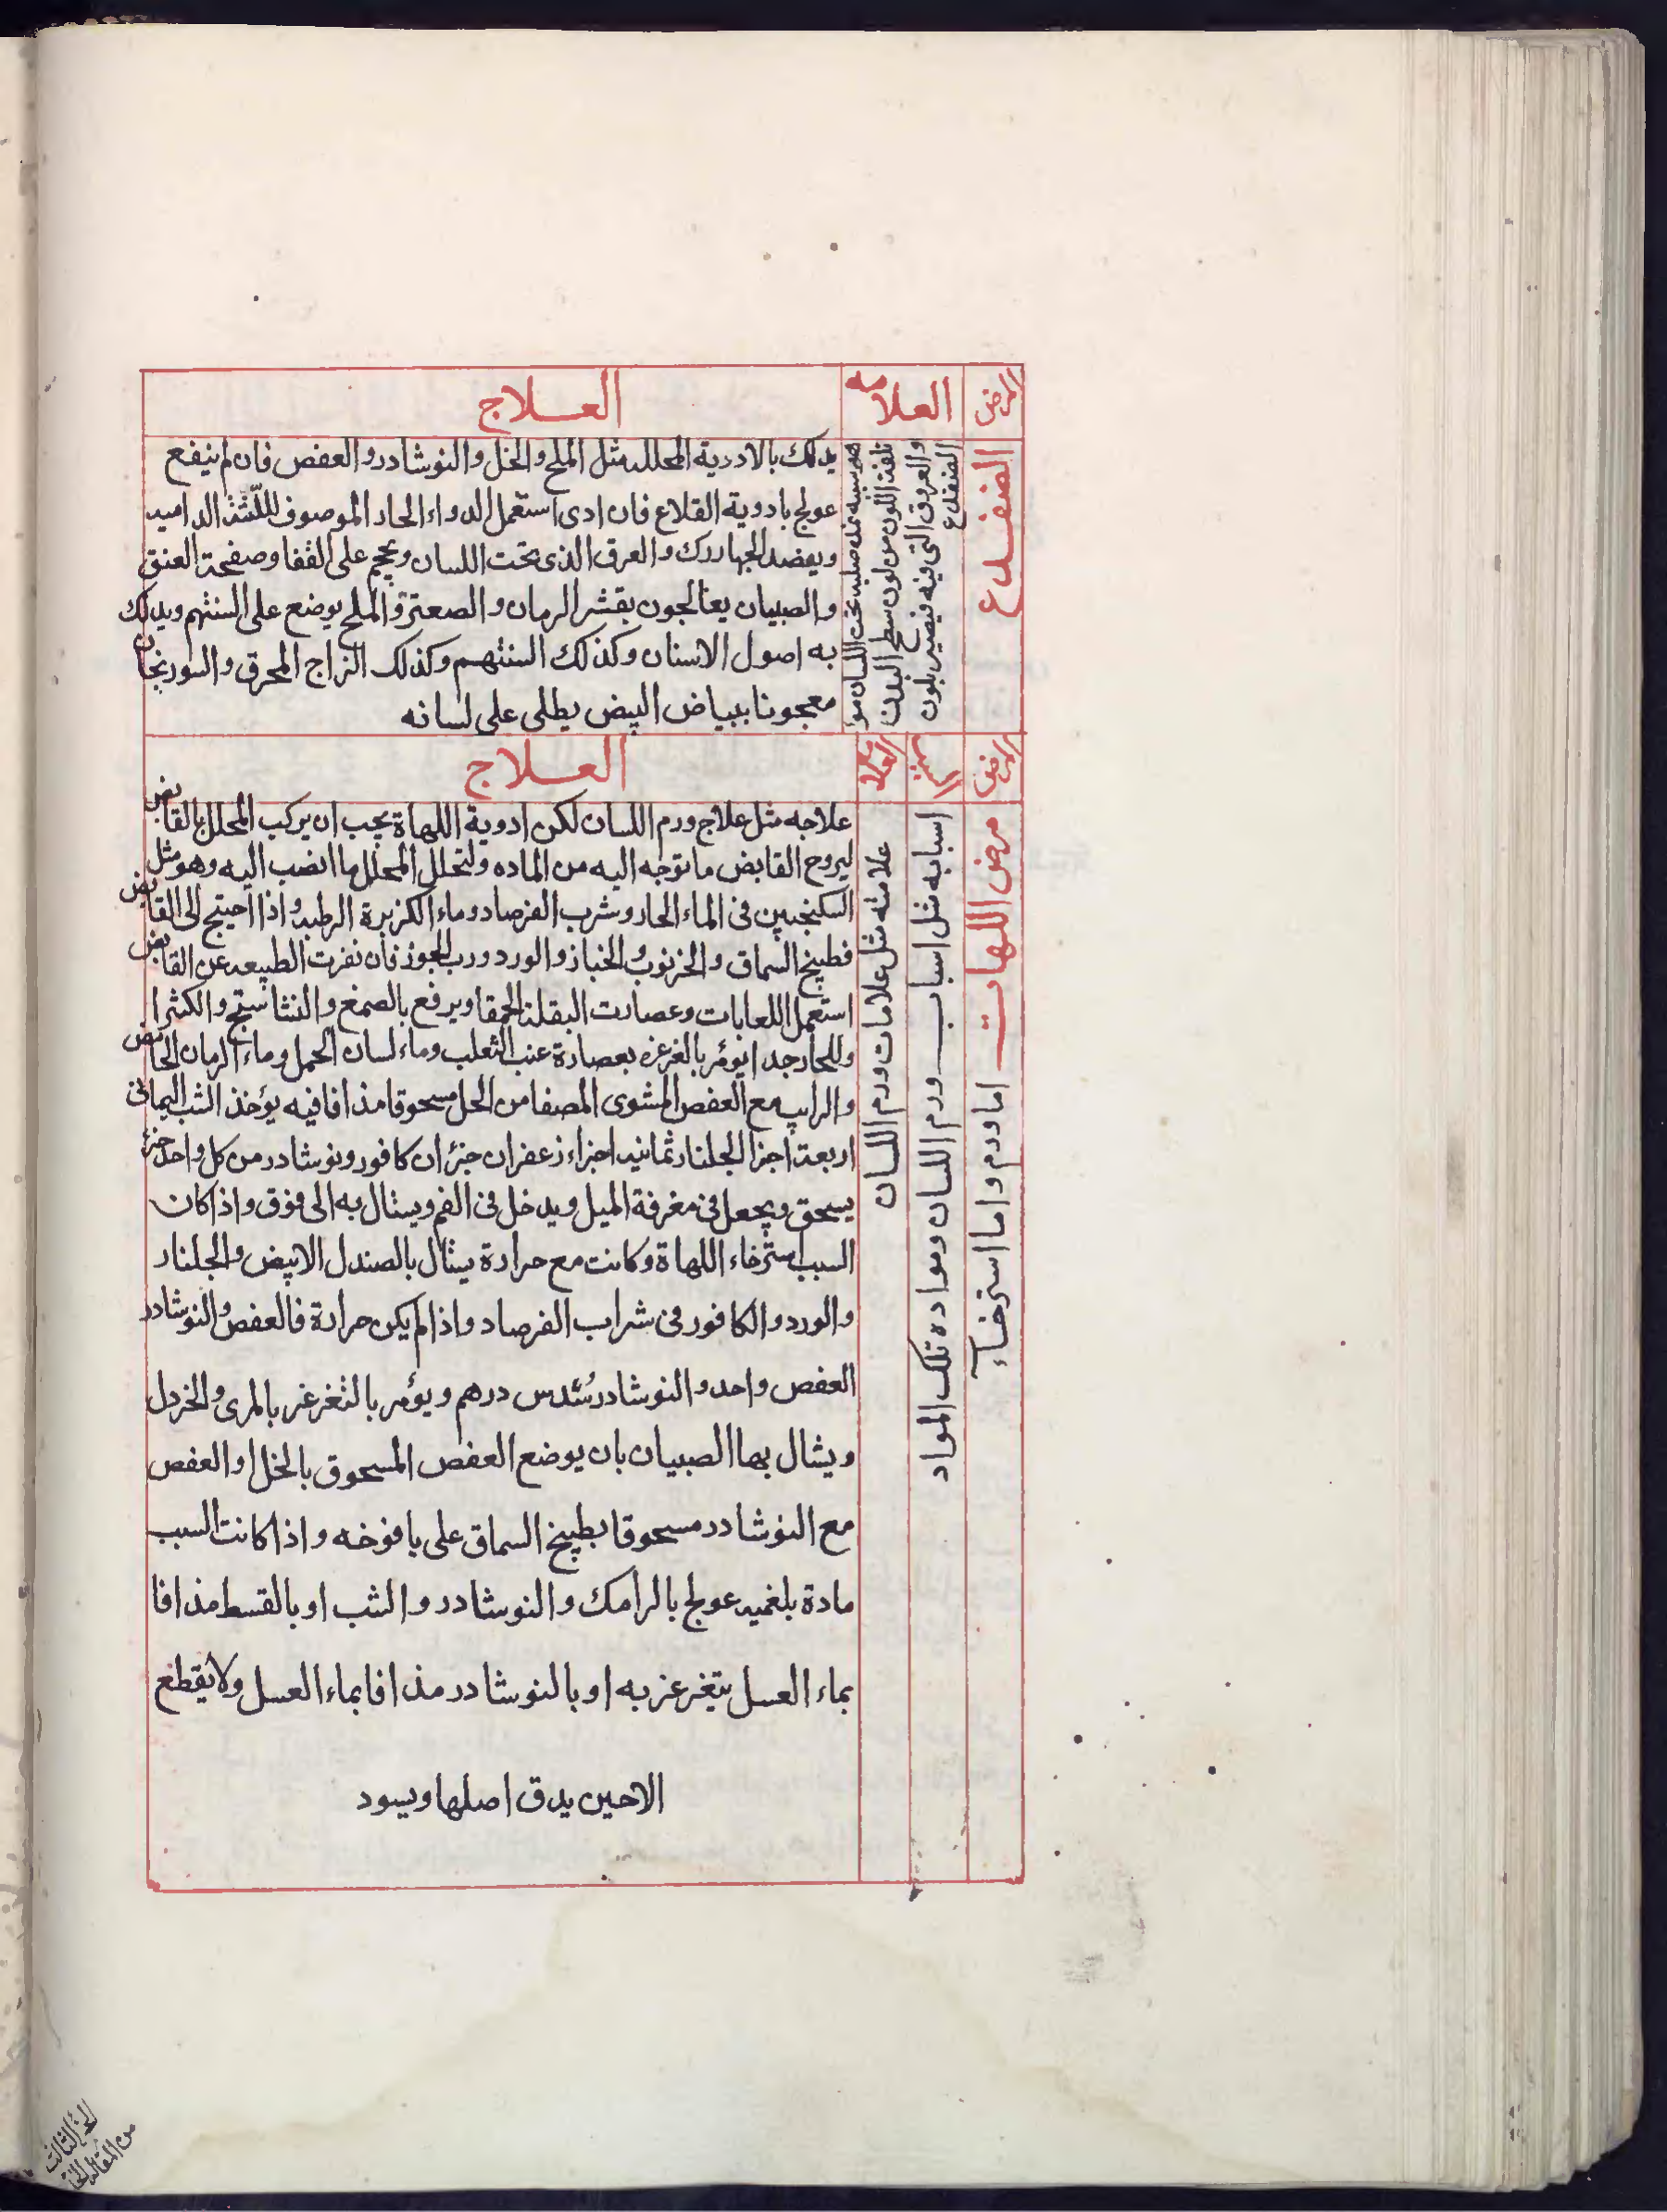 المرض
العلامه
العلاج
الضفدع
هو شبيه غده صلبه تحت اللسان مو
تلفت اللون من لون سطح البدن
والعروق التى فيه فيصير بلون
الضفدع
يدلك بالادوية المحلله مثل الملح والخل والنوشادر والعفص فان لم ينفع
عولج بادوية القلاع فان ادى استعمل الدواء الحاد الموصوف لللثة الداميه
ويفصد الجهاررك والعرق الذى تحت اللسان ويحجم على القفا وصفحة العنق
والصبيان يعالجون بقشر الرمان والصعتر والملح يوضع على السنتهم ويدلك
به اصول الاسنان وكذلك السنتهم وكذلك الزاج المحرق والسورنجان
معجونا ببياض البيض يطلى على لسانه
المرض
السبب
العلامه
العلاج
مرض اللهات اما ورم واما استرخاء
اسبابه مثل اسباب ورم اللسان ومواده تلك المواد
علامته مثل علامات ورم اللسان
علاجه مثل علاج ورم اللسان لكن ادوية اللهاة يجب ان يركب المحلل بالقابض
ليروح القابض ما توجه اليه من الماده ولتحلل المحلل ما انصب اليه وهو مثل
السكنجبين فى الماء الحار وشرب الفرصاد وماء الكزبرة الرطبه واذا احتيج الى القابض
فطبيخ السماق والخرنوب والخباز والورد ورب الجوز فان نفرت الطبيعه عن القابض
استعمل اللعابات وعصارت البقلة الحمقا ويرفع بالصمغ والنشاستج والكثرا
وللحار جدا يؤمر بالغرغره بعصارة عنب الثعلب وماء لسان الحمل وماء الرمان الحامض
والراىب مع العفص المشوى المصفا من الخل مسحوقا مذافا فيه يؤخذ الشب اليمانى
اربعة اجزا الجلنار ثمانيه اجزاء زعفران جزءان كافور ونوشادر من كل واحد جزء
يسحق ويجعل فى مغرفة الميل ويدخل فى الفم ويشال به الى فوق واذا كان
السبب استرخاء اللهاة وكانت مع حرارة يشال بالصندل الابيض والجلنار
والورد والكافور فى شراب الفرصاد واذا لم يكن حرارة فالعفص والنوشادر
العفص واحد والنوشادر سُدس درهم ويؤمر بالتغرغر بالمرى والخردل
ويشال بها الصبيان بان يوضع العفص المسحوق بالخل او العفص
مع النوشادر مسحوقا بطبيخ السماق على يافوخه واذا كانت السبب
مادة بلغميه عولج بالرامك والنوشادر والشب او بالقسط مذافا
بماء العسل يتغرغر به او بالنوشادر مذافا بماء العسل ولا يقطع
الا حين يدق اصلها ويسود
الجزء الثالث
من المقالة